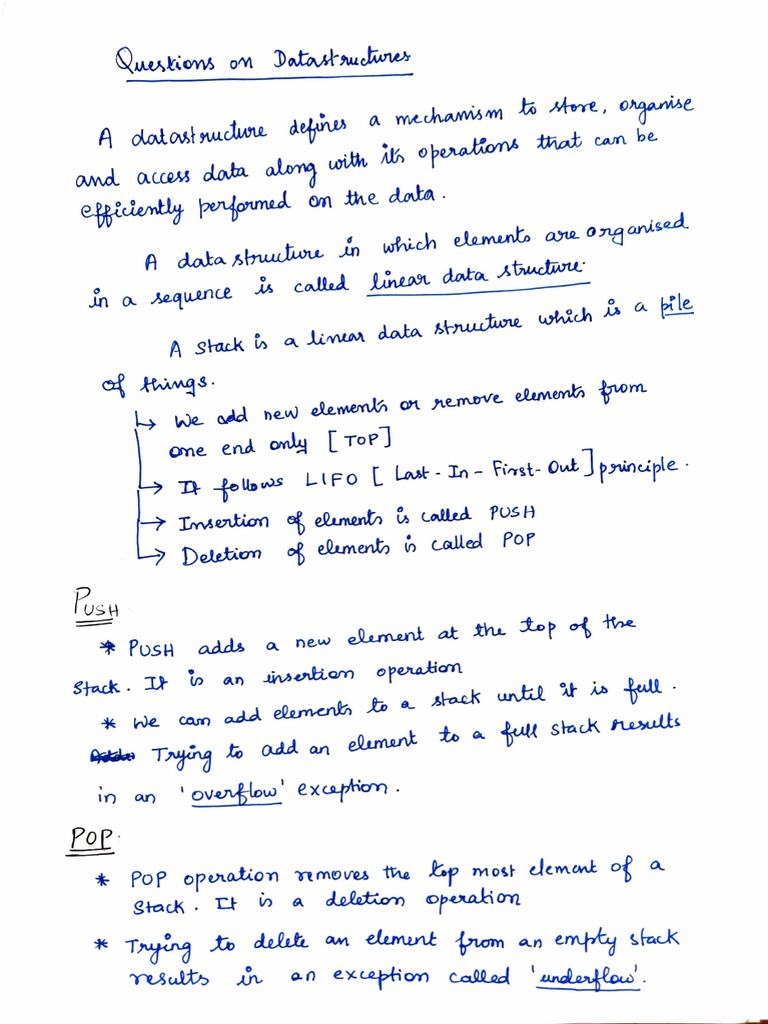 Questions on Datastructures
A datastructure defines a mechanism to store, organise
and access data along with its operations that can be
efficiently performed on the data.
A data structure in which elements are organised
in a sequence is called linear data structure.
A Stack is a linear data structure which is a pile
of things.
↳ We add new elements or remove elements from
one end only [TOP]
→ It follows LIFO [Last-In-First-Out] principle.
→ Insertion of elements is called PUSH
→ Deletion of elements is called POP
PUSH
* PUSH adds a new element at the top of the
Stack. It is an insertion operation
* We can add elements to a stack until it is full.
Trying to add an element to a full stack results
in an 'overflow' exception.
POP.
* POP operation removes the top most element of a
Stack. It is a deletion operation
* Trying to delete an element from an empty stack
results in an exception called 'underflow'.